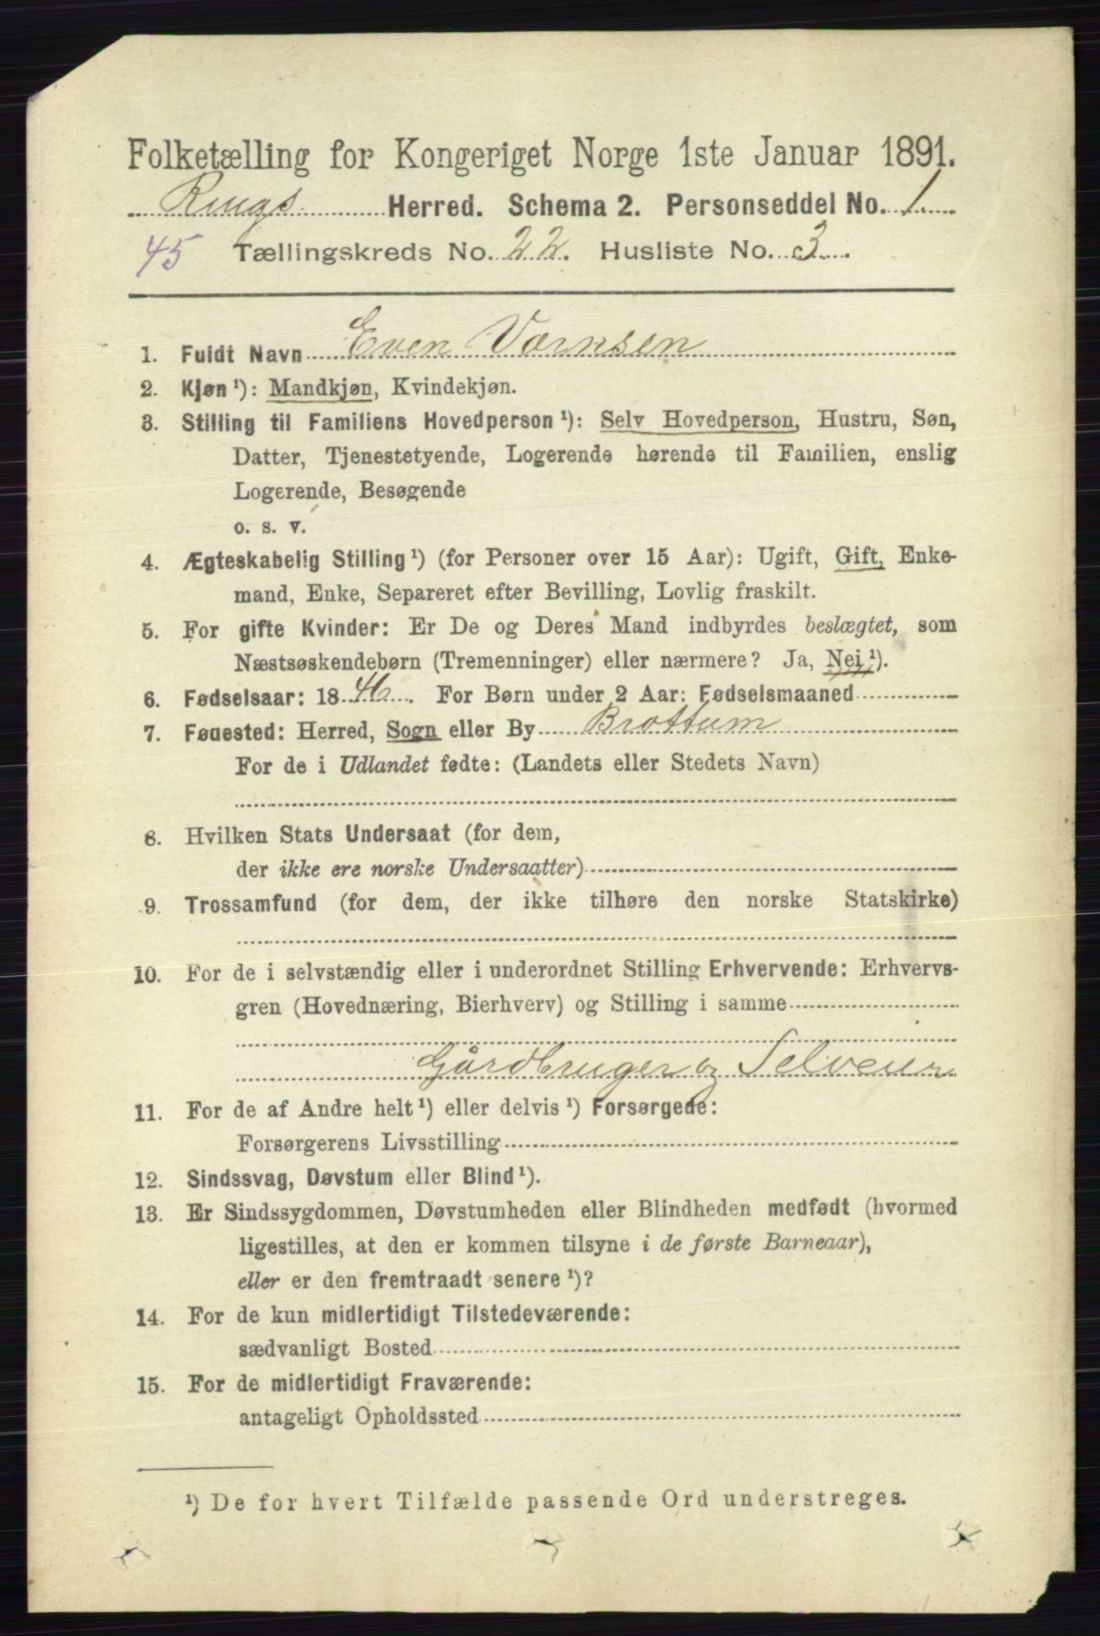 Folketælling for Kongeriget Norge 1ste Januar 1891.
Rings Herred. Schema 2. Personseddel No. 1
45 Tællingskreds No. 22. Husliste No. 3.
1. Fuldt Navn Even Værnsen
2. Kjøn ¹): Mandkjøn, Kvindekjøn.
3. Stilling til Familiens Hovedperson ¹): Selv Hovedperson, Hustru, Søn,
Datter, Tjenestetyende, Logerende hørende til Familien, enslig
Logerende, Besøgende
o. s. v.
4. Ægteskabelig Stilling ¹) (for Personer over 15 Aar): Ugift, Gift, Enke-
mand, Enke, Separeret efter Bevilling, Lovlig fraskilt.
5. For gifte Kvinder: Er De og Deres Mand indbyrdes beslægtet, som
Næstsøskendebørn (Tremenninger) eller nærmere? Ja, Nei ¹).
6. Fødselsaar: 1846. For Børn under 2 Aar: Fødselsmaaned
7. Fødested: Herred, Sogn eller By Brottum
For de i Udlandet fødte: (Landets eller Stedets Navn)
8. Hvilken Stats Undersaat (for dem,
der ikke ere norske Undersaatter)
9. Trossamfund (for dem, der ikke tilhøre den norske Statskirke)
10. For de i selvstændig eller i underordnet Stilling Erhvervende: Erhvervs-
gren (Hovednæring, Bierhverv) og Stilling i samme
Gårdbruger og Selveier
11. For de af Andre helt ¹) eller delvis ¹) Forsørgede:
Forsørgerens Livsstilling
12. Sindssvag, Døvstum eller Blind ¹).
13. Er Sindssygdommen, Døvstumheden eller Blindheden medfødt (hvormed
ligestilles, at den er kommen tilsyne i de første Barneaar),
eller er den fremtraadt senere ¹)?
14. For de kun midlertidigt Tilstedeværende:
sædvanligt Bosted
15. For de midlertidigt Fraværende:
antageligt Opholdssted
¹) De for hvert Tilfælde passende Ord understreges.